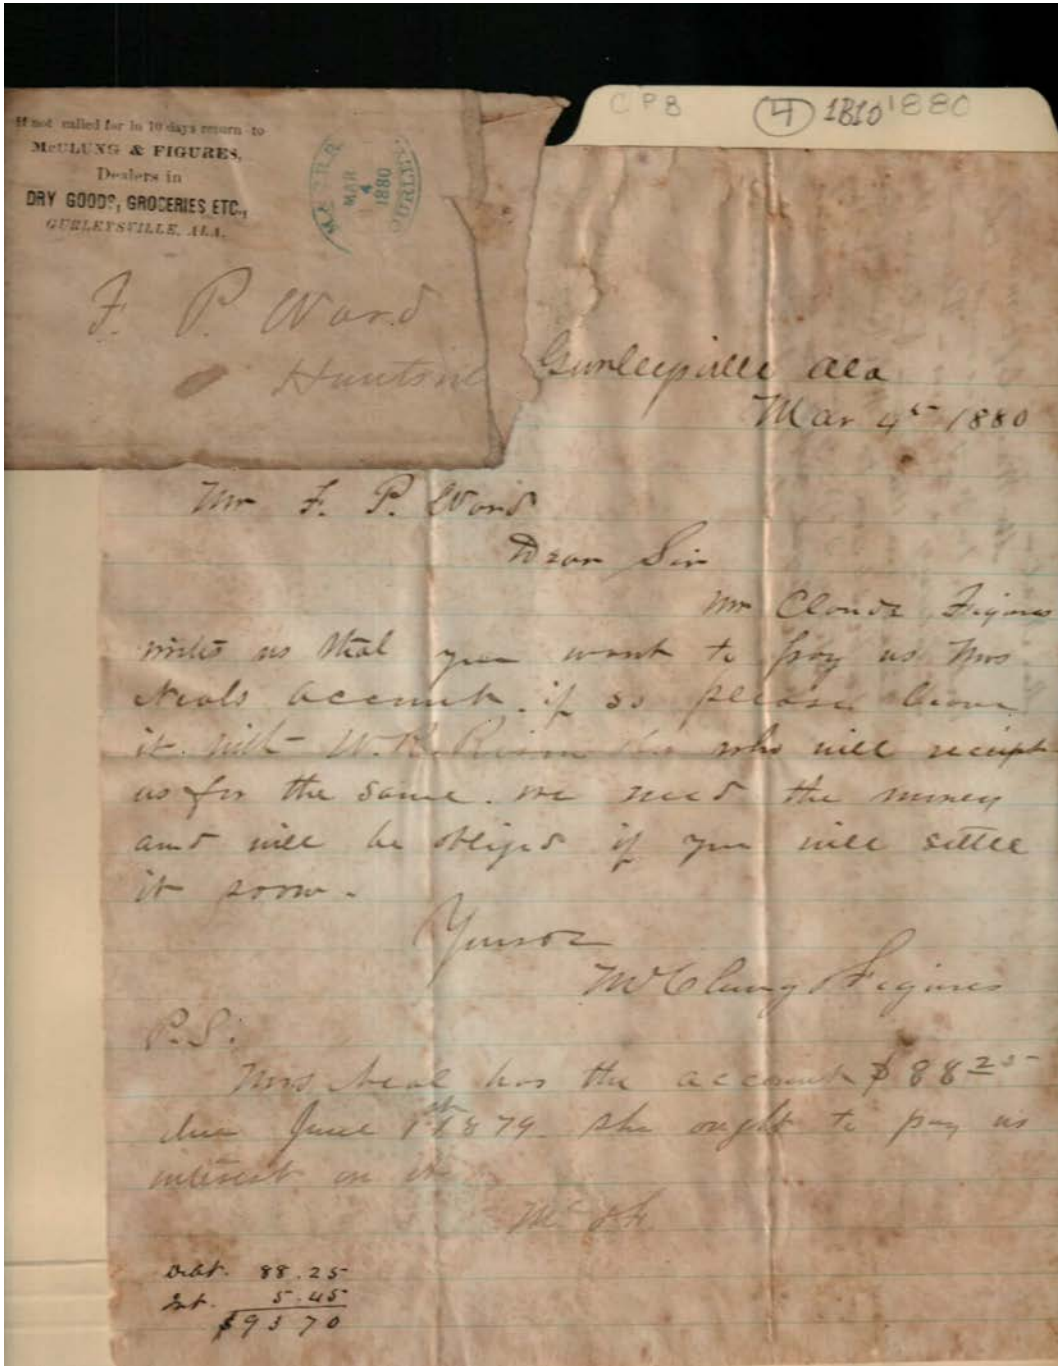 CPB 4 1B10 1880
If not called for in 10 days return to
McCLUNG & FIGURES,
Dealers in
DRY GOODS, GROCERIES ETC.,
GURLEYSVILLE, ALA.
MAR
4
1880
F. P. Ward
Huntsvi
Gurleysville Ala
Mar 4th 1880
Mr F. P. Ward
Dear Sir
Mr Claude Figures
writes us that you want to pay us Mrs
Neals account. if so please leave
it with W. R. who will receipt
us for the same. we need the money
and will be obliged if you will settle
it soon.
Yours
McClung & Figures
P.S.
Mrs Neal has the account $88 25
due June 1st 1879. she ought to pay us
interest on it
Mc & F.
Debt. 88.25
Int. 5.45
$93 70